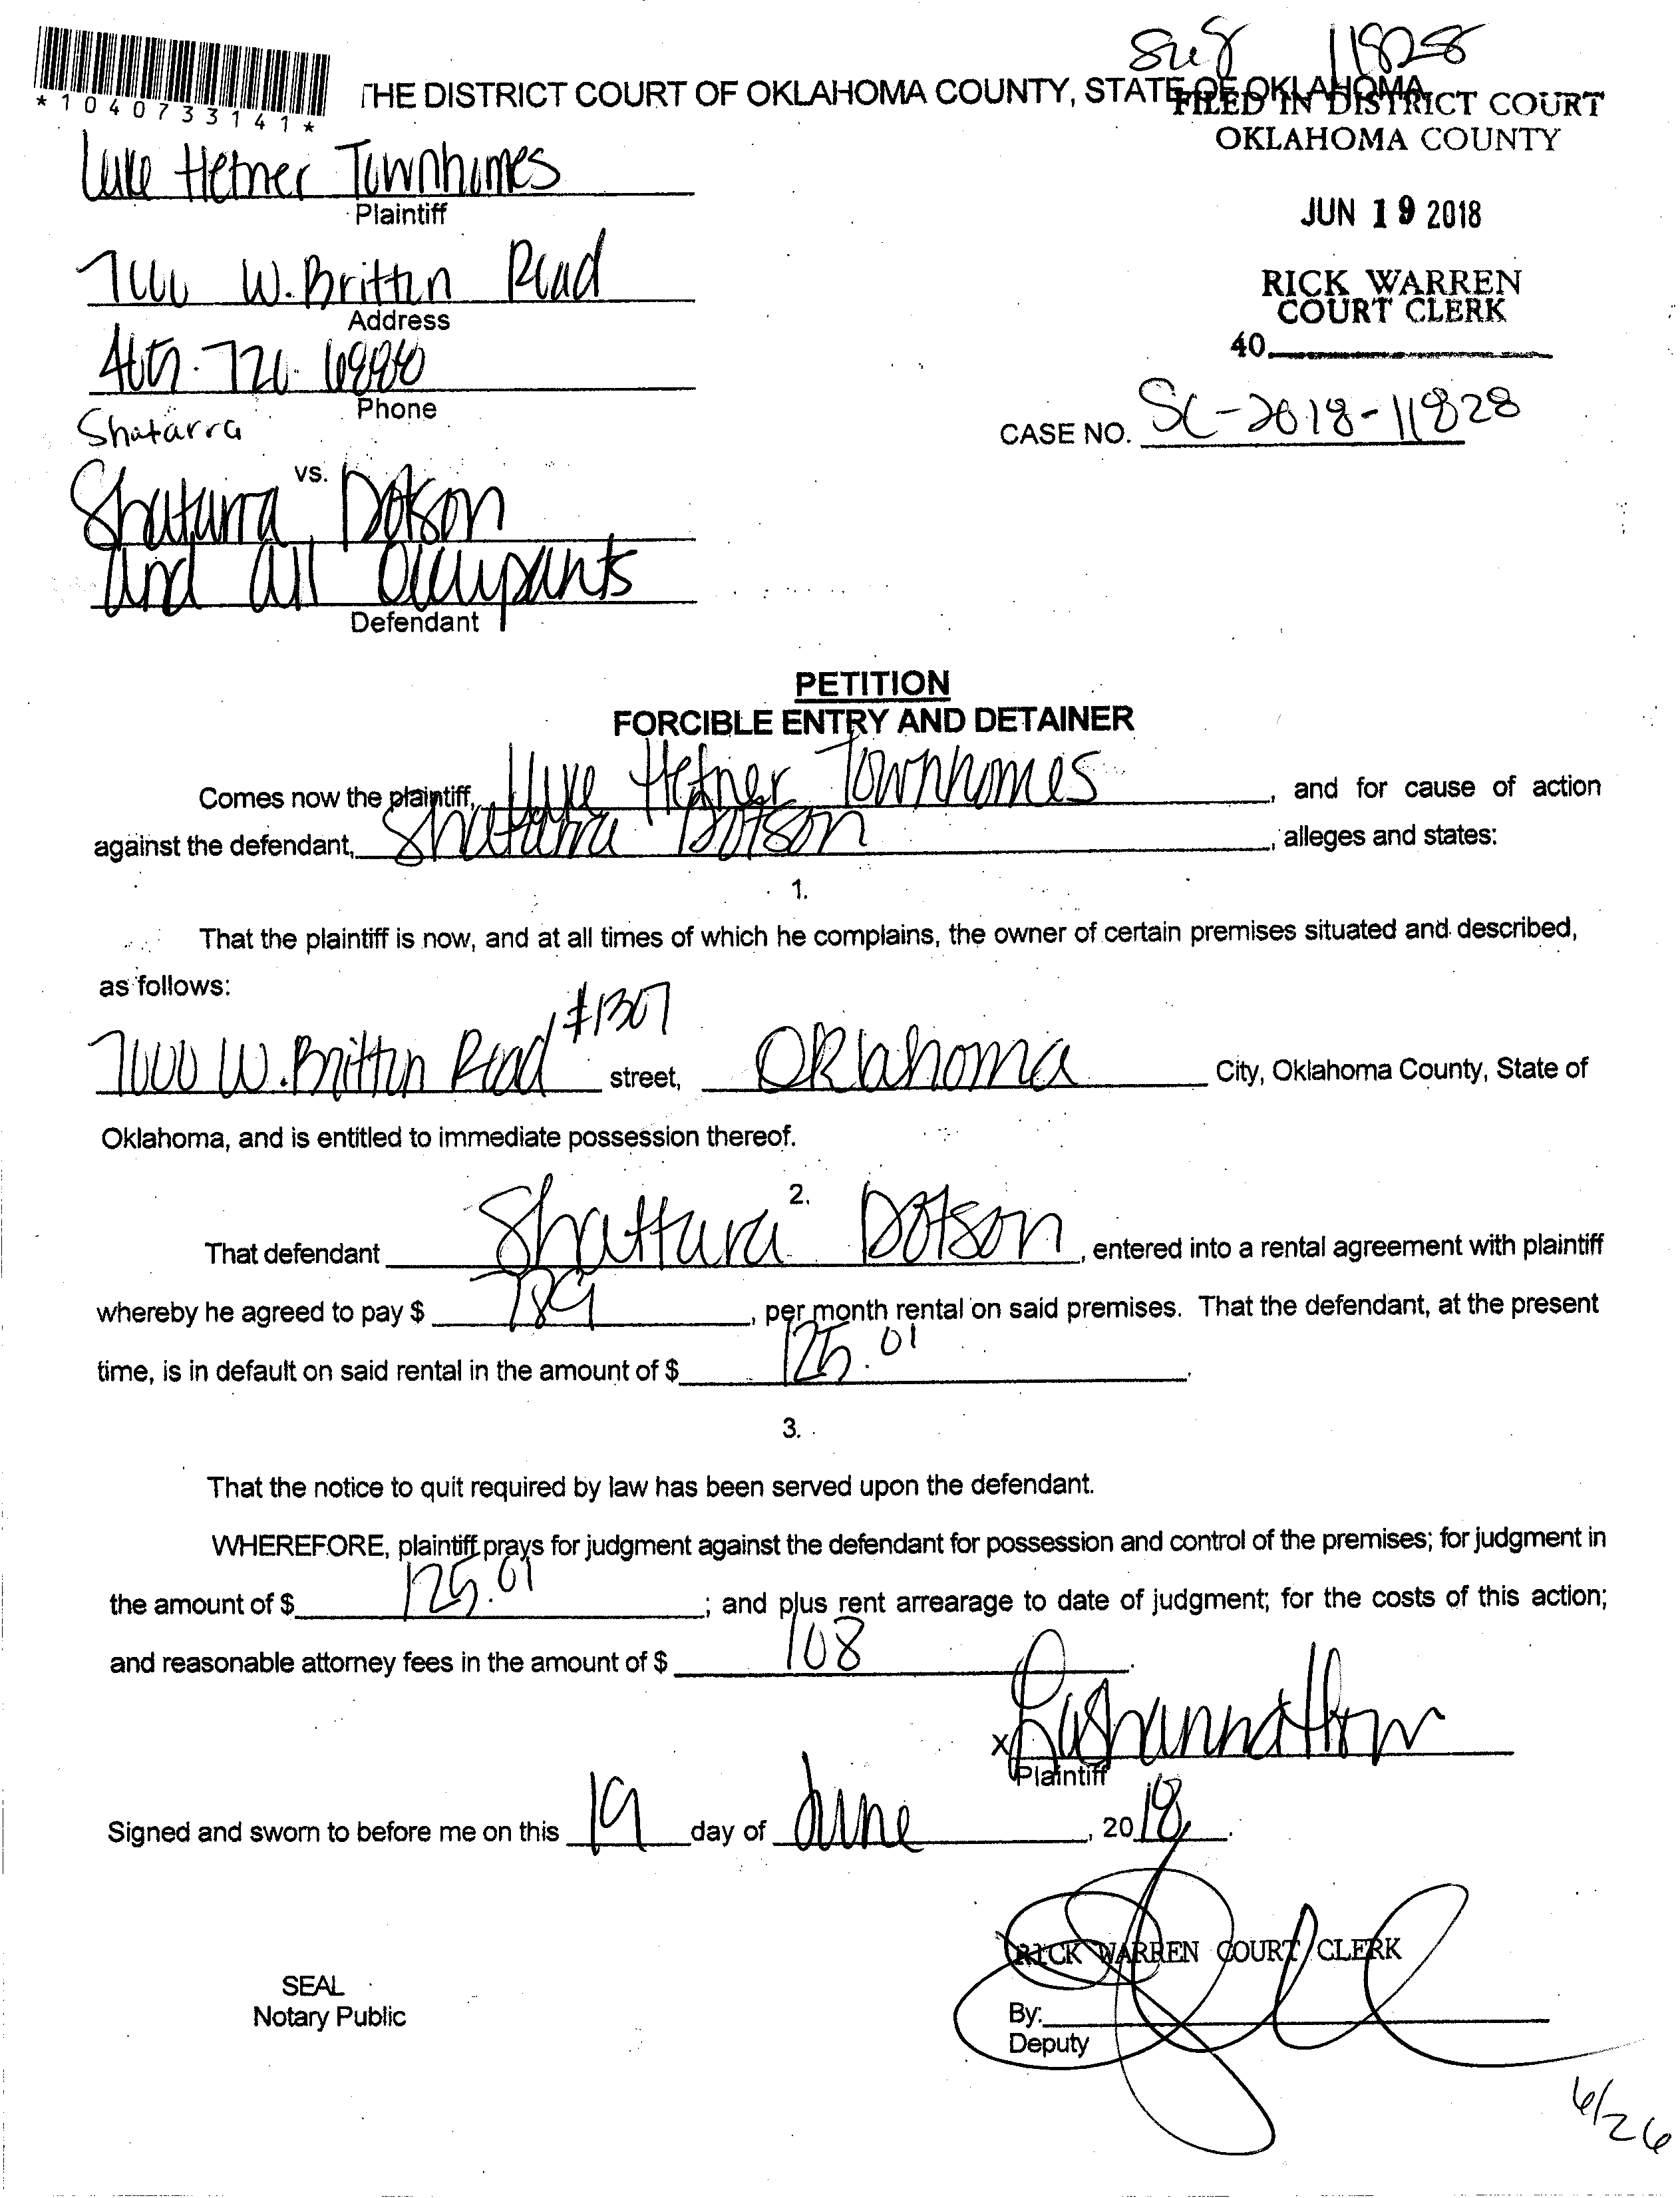 SC-18 11828
*1040733141*
THE DISTRICT COURT OF OKLAHOMA COUNTY, STATE OF OKLAHOMA
FILED IN DISTRICT COURT
OKLAHOMA COUNTY
Lake Hefner Townhomes
Plaintiff
JUN 19 2018
7600 W. Britton Road
Address
RICK WARREN
COURT CLERK
40
405.
Phone
CASE NO. SC-2018-11828
Shatarra
vs.
Shatarra Dotson
And All Occupants
Defendant
PETITION
FORCIBLE ENTRY AND DETAINER
Comes now the plaintiff, Lake Hefner Townhomes, and for cause of action
against the defendant, Shatarra Dotson, alleges and states:
1.
That the plaintiff is now, and at all times of which he complains, the owner of certain premises situated and described,
as follows:
#1307
7600 W. Britton Road street, Oklahoma City, Oklahoma County, State of
Oklahoma, and is entitled to immediate possession thereof.
2.
That defendant Shattara Dotson, entered into a rental agreement with plaintiff
whereby he agreed to pay $ 789, per month rental on said premises. That the defendant, at the present
time, is in default on said rental in the amount of $ 125.01.
3.
That the notice to quit required by law has been served upon the defendant.
WHEREFORE, plaintiff prays for judgment against the defendant for possession and control of the premises; for judgment in
the amount of $ 125.01; and plus rent arrearage to date of judgment; for the costs of this action;
and reasonable attorney fees in the amount of $ 108.
X
Plaintiff
Signed and sworn to before me on this 19 day of June, 2018.
RICK WARREN COURT CLERK
SEAL
Notary Public
By:
Deputy
6/26